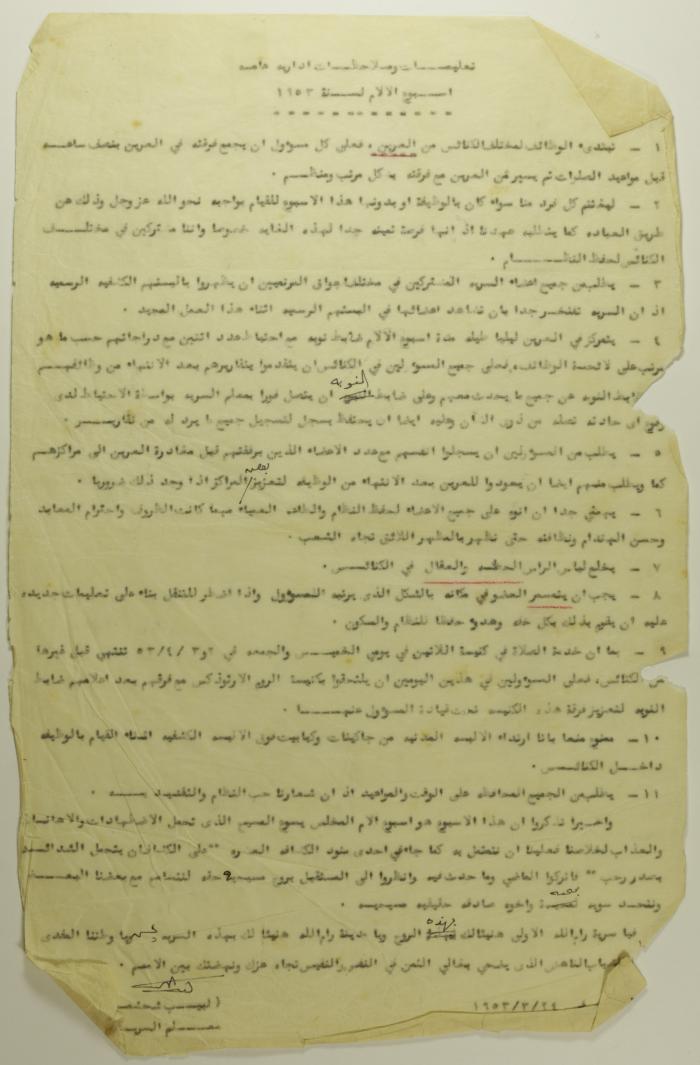 تعليمـــات وملاحظـــات ادارية هامه
اسـبوع الالام لســـنة ١٩٥٣
١ - تبتدىء الوظائف لمختلف الكنائس من العرين ، فعلى كل مسؤول ان يجمع فرقته في العرين بنصف ساعـــه
قبل مواعيد الصلوات ثم يسير من العرين مع فرقته بكل مرتب ومنظـــم ٠
٢ - ليغتنم كل فرد منا سواء كان بالوظيفة او بدونها هذا الاسبوع للقيام بواجبه نحو الله عز وجل وذلك عن
طريق العباده كما يتطلبه عهدنا اذ انها فرصة ثمينه جدا لهذه الغايه خصوصا واننا مشتركين في مختلـــف
الكنائس لحفظ النظـــــام ٠
٣ - يطلب من جميع اعضاء السريه المشتركين في مختلف ان يظهروا بالبستهم الكشفيه الرسميه
اذ ان السريه تفتخر جدا بان تشاهد اعضائها في البستهم الرسميه اثناء هذا العمل المجيد ٠
٤ - يتمركز في العرين ليليا طيلة مدة اسبوع الالام ضابط نوبه مع احتياط عدد اثنين مع دراجاتهم حسب ما هو
مرتب على لائحة الوظائف ، فعلى جميع المسؤولين في الكنائس ان يتقدموا بتقاريرهم بعد الانتهاء من وظائفهـــم
النوبه
النوبه عن جميع ما يحدث معهم وعلى ضابط ان يتصل فورا بمعلم السريه بواسطة الاحتياط لدى
اى حادثه تصله من ذوى الشان وعليه ايضا ان يحتفظ بسجل لتسجيل جميع ما يرد له من تقاريـــر ٠
٥ - يطلب من المسؤولين ان يسجلوا انفسهم مع عدد الاعضاء الذين برفقتهم قبل مغادرة العرين الى مراكزهـم
بعض
كما ويطلب منهم ايضا ان يعودوا للعرين بعد الانتهاء من الوظيفه لتعزيز المراكز اذا وجد ذلك ضروريا ٠
٦ - يهمني جدا ان انوه على جميع الاعضاء لحفظ النظام مهما كانت الظروف واحترام المعابد
وحسن الهندام ونظافته حتى نظهر بالمظهر اللائق تجاه الشعب ٠
٧ - يخلع لباس الراس الحطه والعقال في الكنائـــس ٠
٨ - يجب ان يتسمر العضو في مكانه بالشكل الذى يرتبه المسؤول واذا اضطر للتنقل بناء على تعليمات جديده
عليه ان يقوم بذلك بكل خفه وهدوء حفظا للنظام والسكون ٠
٩ - بما ان خدمة الصلاة في كنيسة اللاتين في يومي الخميـــس والجمعه في ٢و٣ /٤/ ٥٣ تنتهي قبل غيرها
من الكنائس ، فعلى المسؤولين في هذين اليومين ان يلتحقوا بكنيسة الروم الارثوذكس مع فرقهم بعد اعلامهم ضابط
النوبه لتعزيز فرقة هذه الكنيسه تحت قيادة المسؤول عنهـــــا ٠
١٠ - ممنوع منعا باتا ارتداء الالبسه المدنيه من جاكيتات وكبابيت فوق الالبسه الكشفيه اثناء القيام بالوظيفه
داخـــل الكنائـــس ٠
١١ - يطلب من الجميع المحافظه على الوقت والمواعيد اذ ان شعارنا حب النظام والتقيـــد بـــــه ٠
واخيرا تذكروا ان هذا الاسبوع هو اسبوع الام المخلص يسوع المسيح الذى تحمل الاضطهادات والاهانـات
والعذاب لخلاصنا فعلينا ان نتمثل به كما جاء في احدى بنود الكشافه العشره " على الكشاف ان يتحمل الشدائـــد
بصدر رحب " فاتركوا الماضي وما حدث فيه وانظروا الى المستقبل بروح مسيحية حقه لنتسامح مع بعضنا البعـــض
بصفة
ونتحد سويه واخوه صادقه حقيقيه صميميه ٠
بهذه
فيا سرية رام الله الاولى هنيئا لك الروح ويا مدينة رام الله هنيئا لك بهذه السريه ويا وطننا المفدى
الشباب الناهض الذى يضحي بغالي الثمن في النفس والنفيس تجاه عزك ونهضتك بين الامم ٠
١٩٥٣/٣/٢٤
( لبيـــب
معـــلم السريـــة